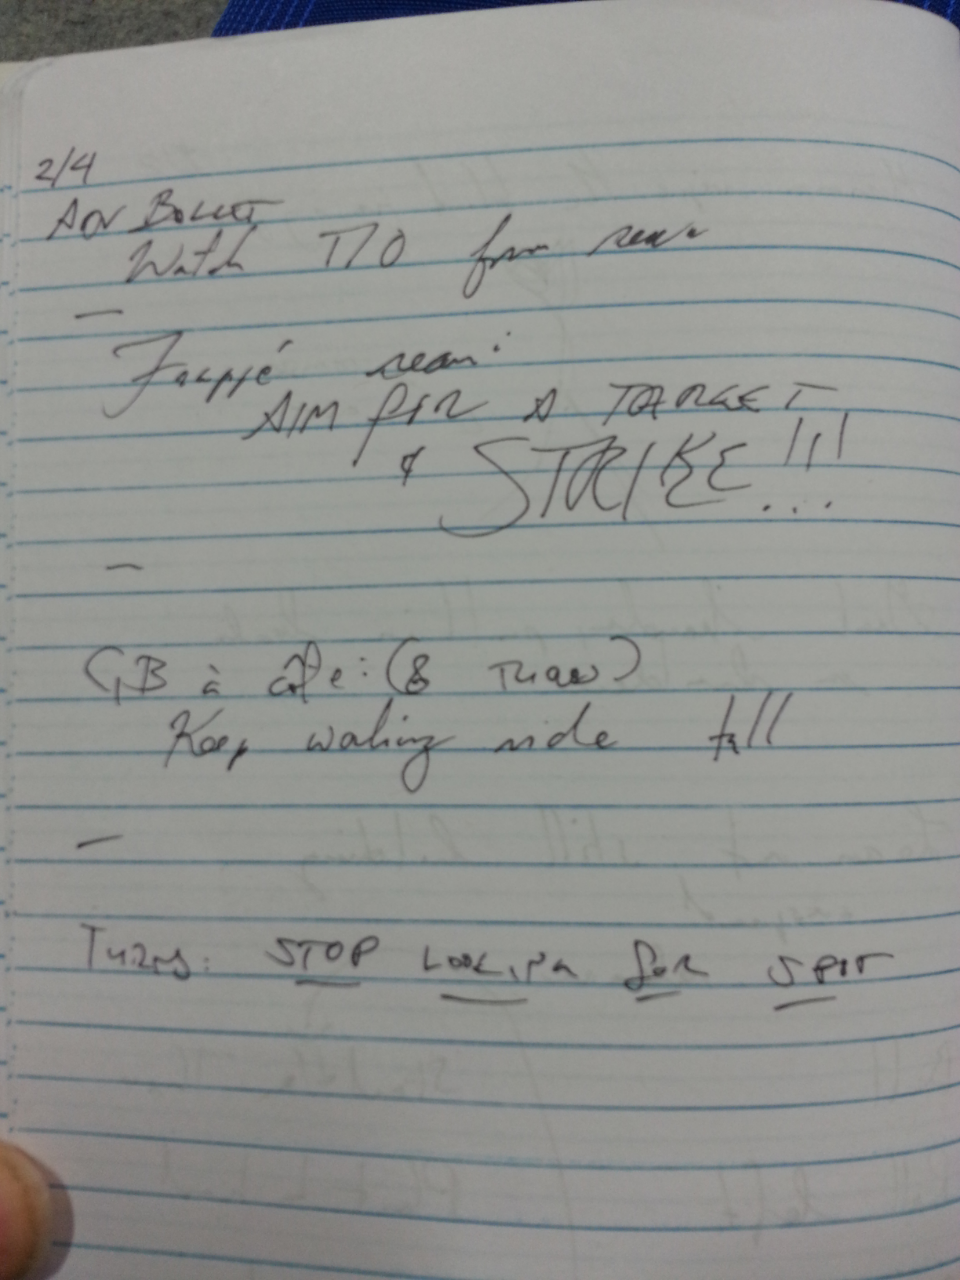 2/4
ADV BALLET
Watch T/O from rear
—
Frappé rear:
AIM FOR A TARGET
& STRIKE!!!
—
GB à côté: (& THROW)
Keep working side tall
—
Turns: STOP LOOKING FOR SPOT